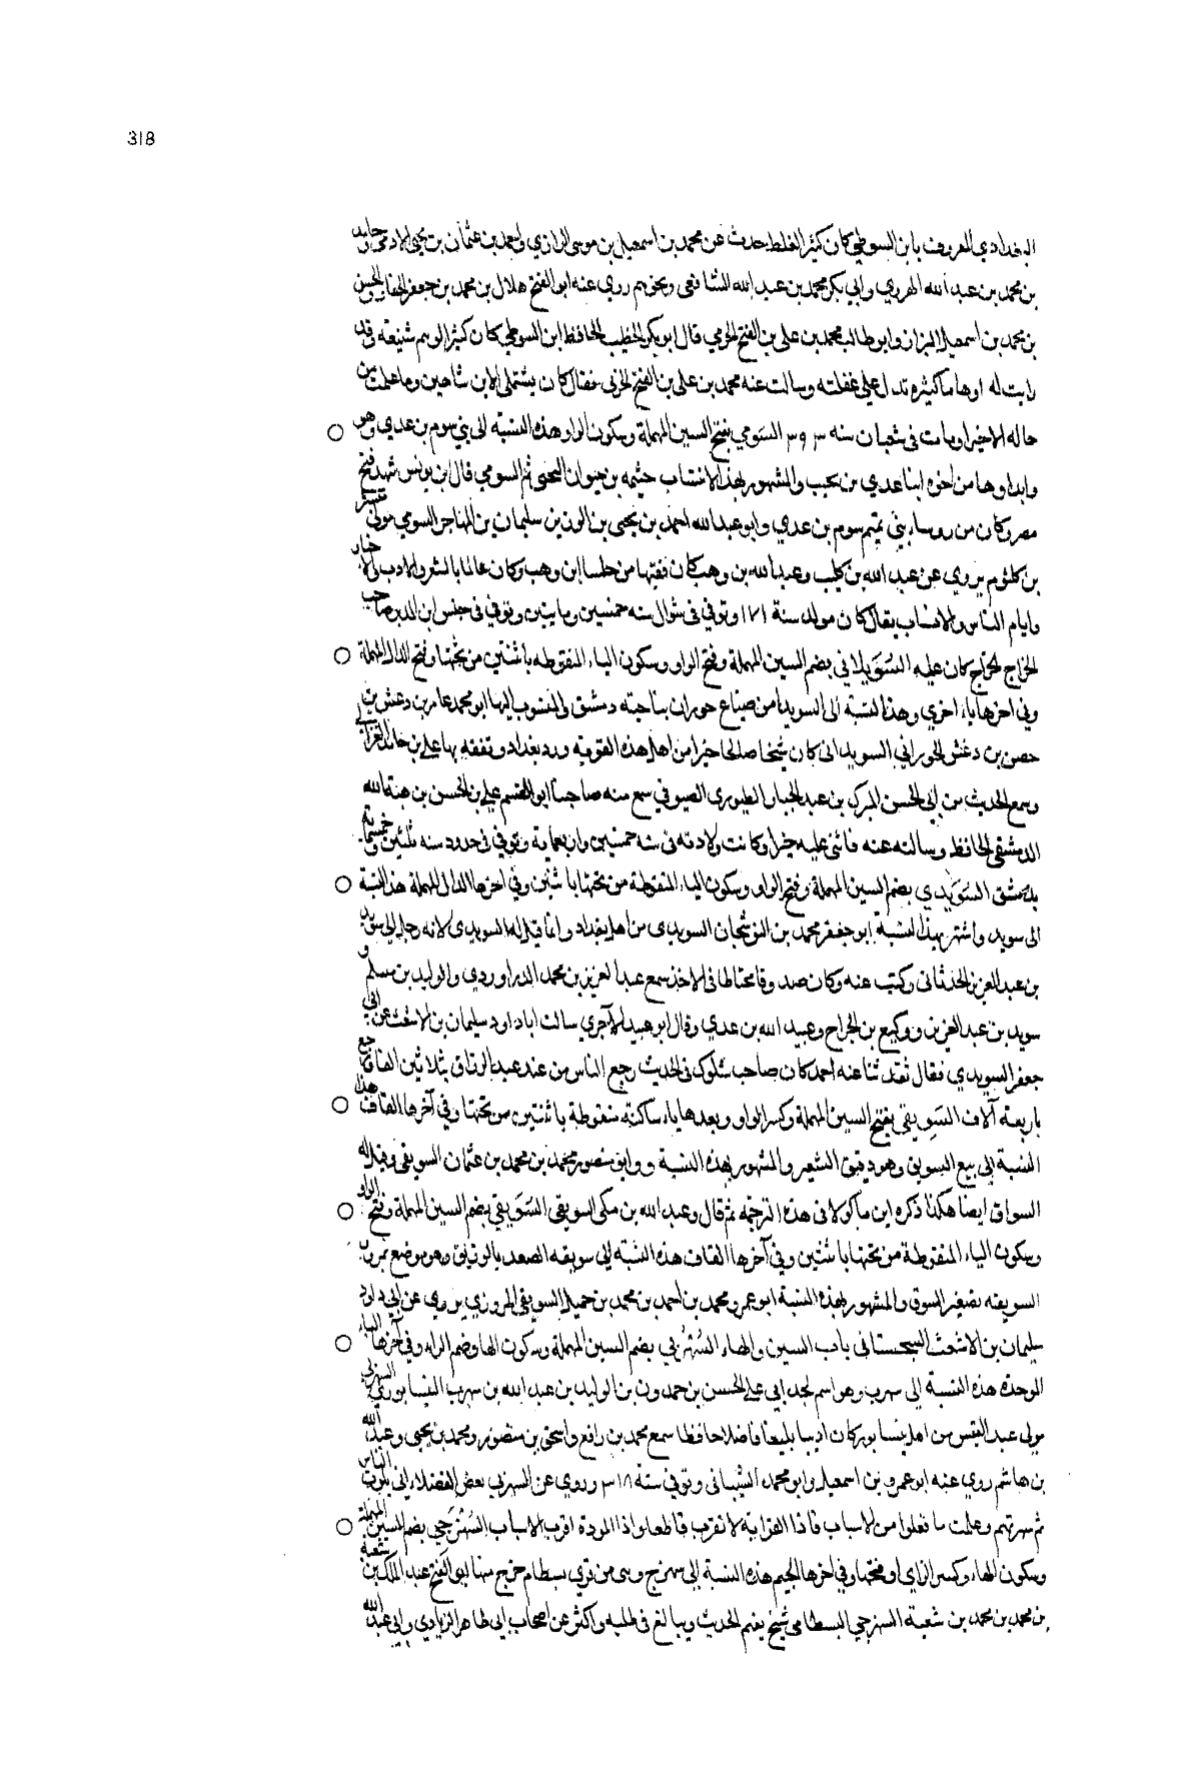 318
البغدادي المعروف بابن السوطي كان كثير الغلط حدث عن محمد بن اسمعيل بن موسى الرازي واحمد بن عثمان بن يحيى الادمي وحامد
بن محمد بن عبد الله الهروي وابي بكر محمد بن عبد الله الشافعي ونحوهم روى عنه ابو الفتح هلال بن محمد بن جعفر الحفار والحسن
بن محمد بن اسمعيل البزاز وابو طالب محمد بن علي بن الفتح الحربي قال ابو بكر الخطيب الحافظ ابن السوطي كان كثير الوهم شنيعه وقد
رايت له اوهاما كثيرة تدل على غفلته وسالت عنه محمد بن علي بن الفتح الحربي فقال كان يستملي لابن شاهين وما علمت من
حاله الا خيرا ومات في شعبان سنه ٣٩٣ السَومي بفتح السين المهملة وسكون الواو هذه النسبة الى بني سوم بن عدي وهو
وابداوها من اخوة ابنا عدي من تجيب والمشهور بهذا الانتساب خيثمه بن حيوان التجيبي ثم السومي قال ابن يونس شهد فتح
مصر وكان من روساء بني تميم سوم بن عدي وابو عبد الله احمد بن يحيى بن الوزير بن سليمان بن المهاجر السومي مولى
بن كلثوم يروي عن عبد الله بن كليب وعبد الله بن وهب كان فقيها من جلسا ابن وهب وكان عالما بالشعر والادب والاخبار
وايام الناس والانساب يقال كان مولده سنة ١٧١ وتوفي في شوال سنه خمسين ومايتين وتوفي في حبس ابن المدبر صاحب
الخراج لخراج كان عليه السُوَيداني بضم السين المهملة وفتح الواو وسكون الياء المنقوطه باثنتين من تحتها وفتح الدال المهملة
وفي اخرها ياء اخرى وهذه النسبة الى السويدا من ضياع حوران بناحية دمشق والمنسوب اليها ابو محمد عامر بن دغش بن
حصن بن دغش الحوراني السويداني كان شيخا صالحا خيرا من اهل هذه القرية ورد بغداد وتفقه بها على ابي حامد الغزالي
وسمع الحديث من ابي الحسن المبرك بن عبد الجبار الطيوري الصيرفي سمع منه صاحبنا ابو القسم علي بن الحسن بن هبة الله
الدمشقي الحافظ وسالته عنه فاثنى عليه خيرا وكانت ولادته في سنه خمسين واربعماية وتوفي في حدود سنه ثلثين وخمسماية
بدمشق السُوَيدي بضم السين المهملة وفتح الواو وسكون الياء المنقوطة من تحتها باثنتين وفي اخرها الدال المهملة هذه النسبة
الى سويد واشتهر بهذه النسبة ابو جعفر محمد بن النوشجان السويدي من اهل بغداد وانما قيل له السويدي لانه رحل الى سويد
بن عبد العزيز الحدثاني وكتب عنه وكان صدوقا محتاطا في الاخذ سمع عبد العزيز بن محمد الدراوردي والوليد بن مسلم و
سويد بن عبد العزيز ووكيع بن الجراح وعبيد الله بن عدي وقال ابو عبيد الآجري سالت اباداود سليمان بن الاشعث عن ابي
جعفر السويدي فقال ثقة حدثنا عنه احمد كان صاحب شكوك في الحديث رجع الناس من عند عبد الرزاق بثلاثين الفا ورجع
باربعة آلاف السَوِيقي بفتح السين المهملة وكسر الواو وبعدها ياء ساكنة منقوطة باثنتين من تحتها وفي آخرها القاف هذه
النسبة الى بيع السويق وهو دقيق الشعير والمشهور بهذه النسبة وابو منصور محمد بن محمد بن عثمان السويقي وقيل له
السواق ايضا هكذا ذكره ابن ماكولا في هذه الترجمة ثم قال وعبد الله بن مكي السويقي السُوَيقي بضم السين المهملة وفتح الواو
وسكون الياء المنقوطة من تحتها باثنتين وفي آخرها القاف هذه النسبة الى سويقه الصغد بالرزيق وهو موضع بمرو
السويقه تصغير السوق والمشهور بهذه النسبة ابو عمرو محمد بن احمد بن محمد بن جميل السويقي المروزي يروي عن ابي داود
سليمان بن الاشعث السجستاني باب السين والهاء السُهْرُبي بضم السين المهملة وسكون الها وضم الراء وفي آخرها الباء
الموحدة هذه النسبة الى سهرب وهو اسم لجد ابي علي الحسن بن حمدون بن الوليد بن عبد الله بن سهرب النيسابوري السهربي
مولى عبد القيس من اهل نيسابور كان اديبا بليغا فاضلا حافظا سمع محمد بن رافع واسحق بن منصور ومحمد بن يحيى وعبد الله
بن هاشم روى عنه ابو عمرو بن اسمعيل وابو محمد الشيباني وتوفي سنة ٣١٨ وروي عن السهربي بعض الفضلاء اني بلوت الناس
ثم سبرتهم وعلمت ما فعلوا من الاسباب فاذا القرابة لا تقرب قاطعا واذا المودة اقرب الاسباب السُهْرَجي بضم السين المهملة
وسكون الهاء وكسر الراي او فتحها وفي اخرها الجيم هذه النسبة الى سهرج وهي من قرى بسطام خرج منها ابو الفتح عبد الملك بن شعبة
بن محمد بن محمد بن شعبة السهرجي البسطامي شيخ يفهم الحديث ويبالغ في طلبه واكثر عن اصحاب ابي طاهر الزيادي وابي عبد الله